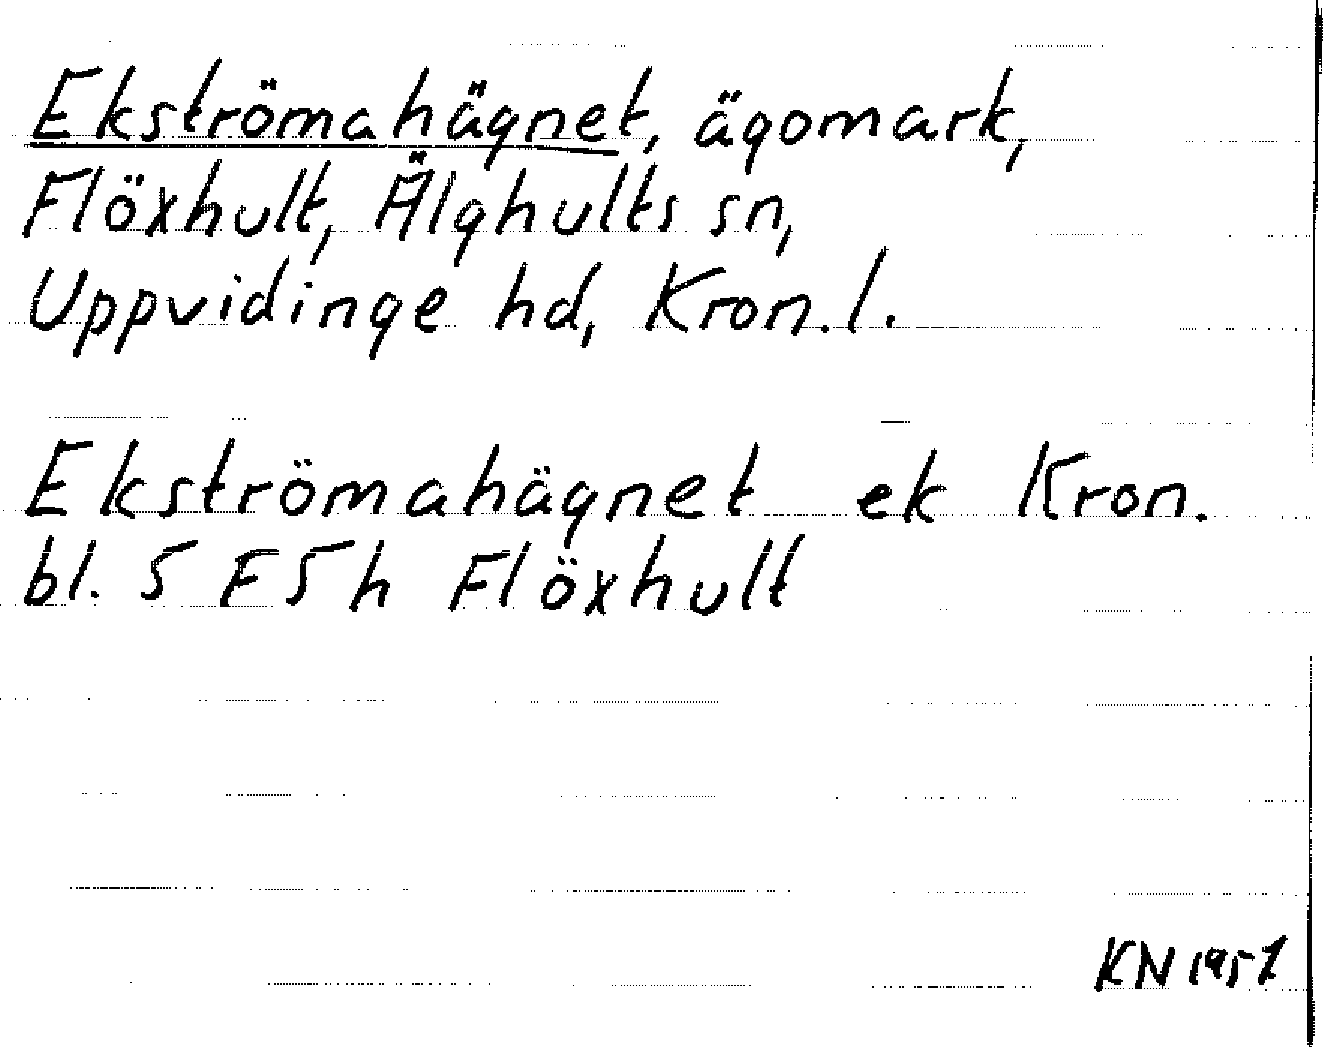 Ekströmahägnet, ägomark,
Flöxhult, Älghults sn,
Uppvidinge hd, Kron. l.
Ekströmahägnet ek Kron.
bl. 5 F 5 h Flöxhult
KN 1957